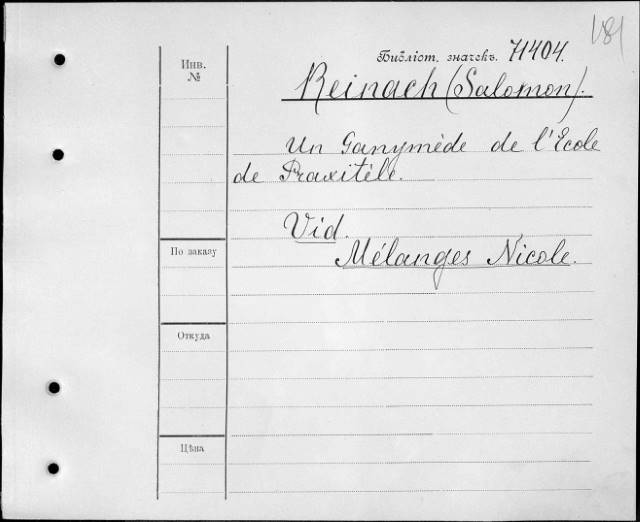 Инв.
№
Библіот. значекъ. 71404.
Reinach (Salomon).
Un Ganymède de l'Ecole
de Praxitèle.
Vid.
Mélanges Nicole.
По заказу
Откуда
Цѣна